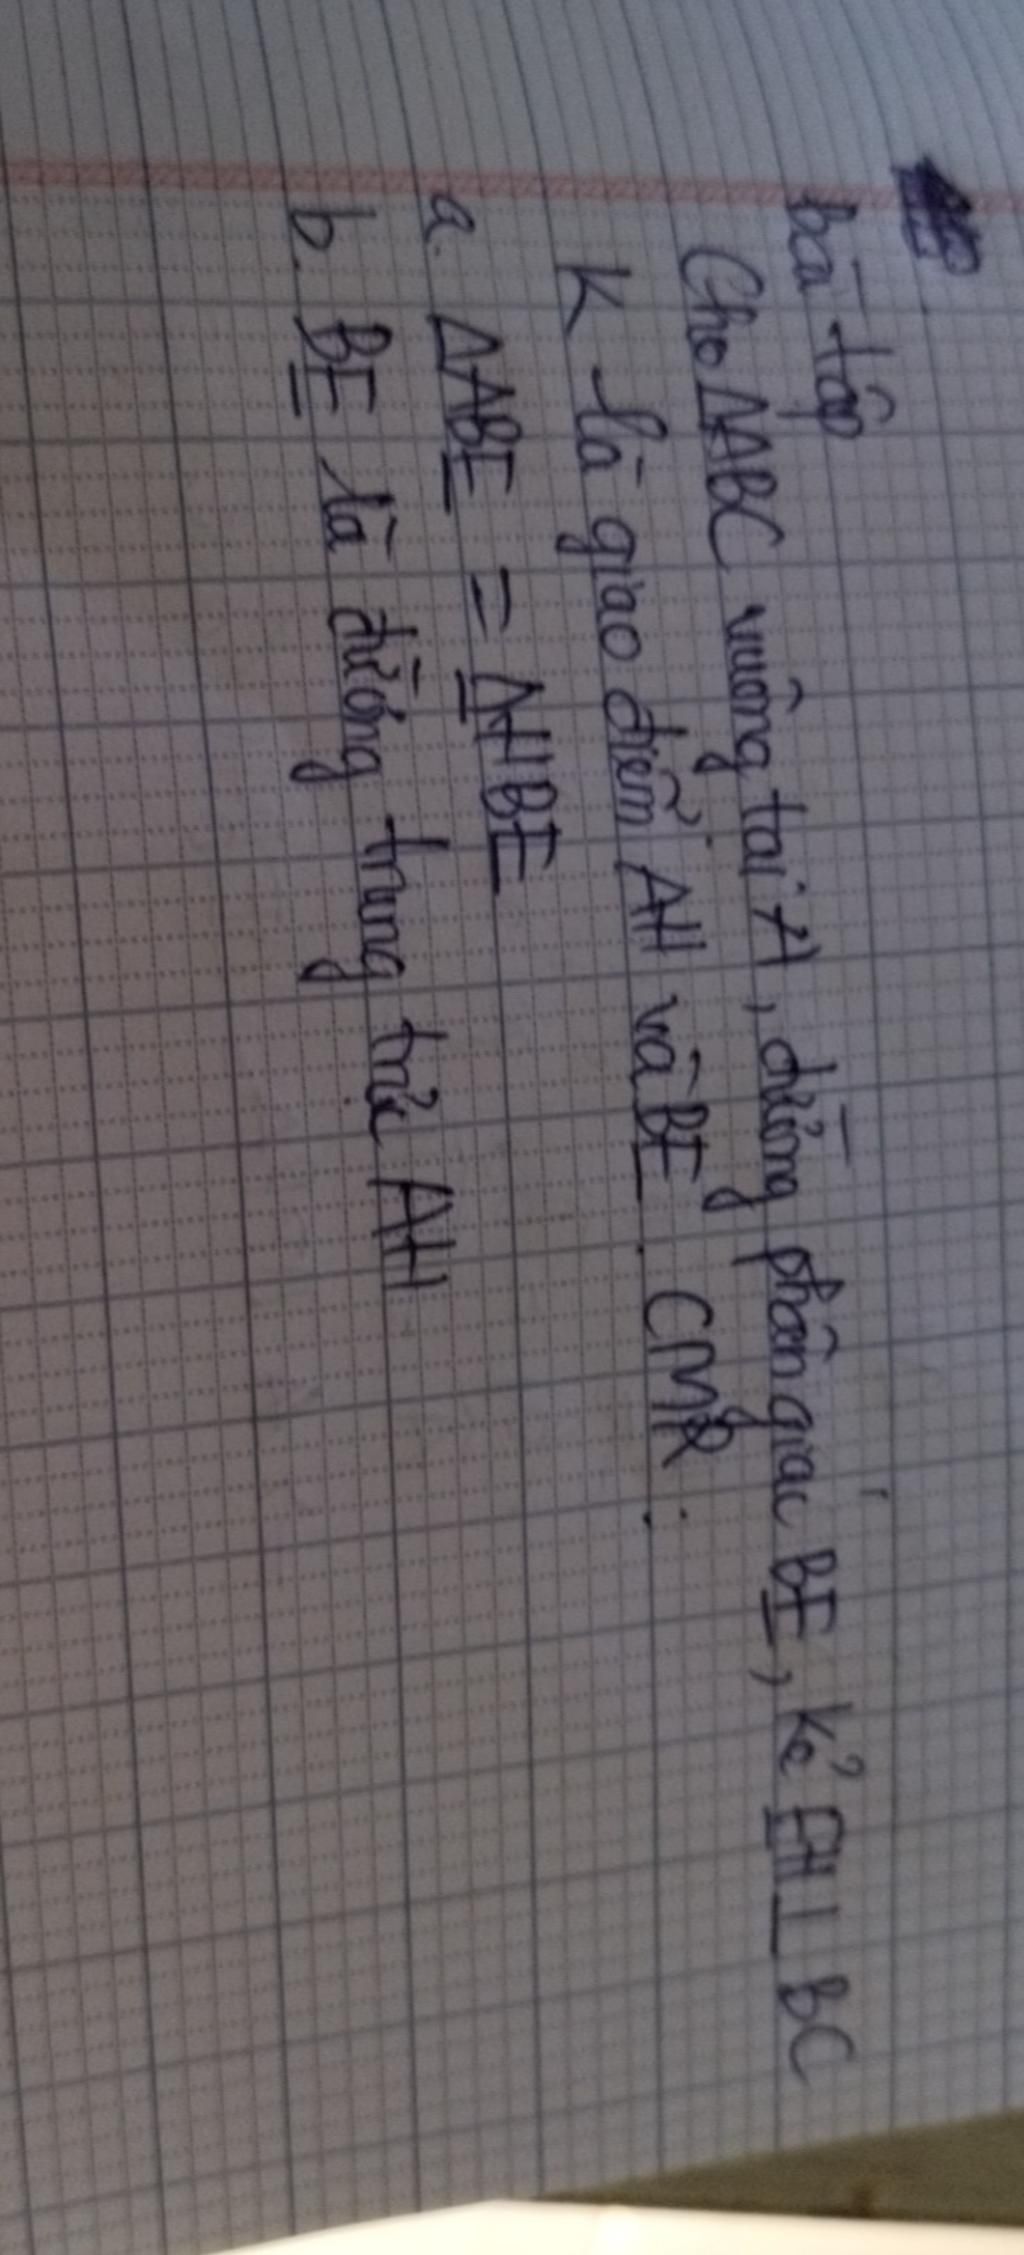 bài tập
Cho ΔABC vuông tại A, đường phân giác BE, kẻ EH ⊥ BC
K là giao điểm AH và BE. CMR:
a. ΔABE = ΔHBE
b. BE là đường trung trực AH